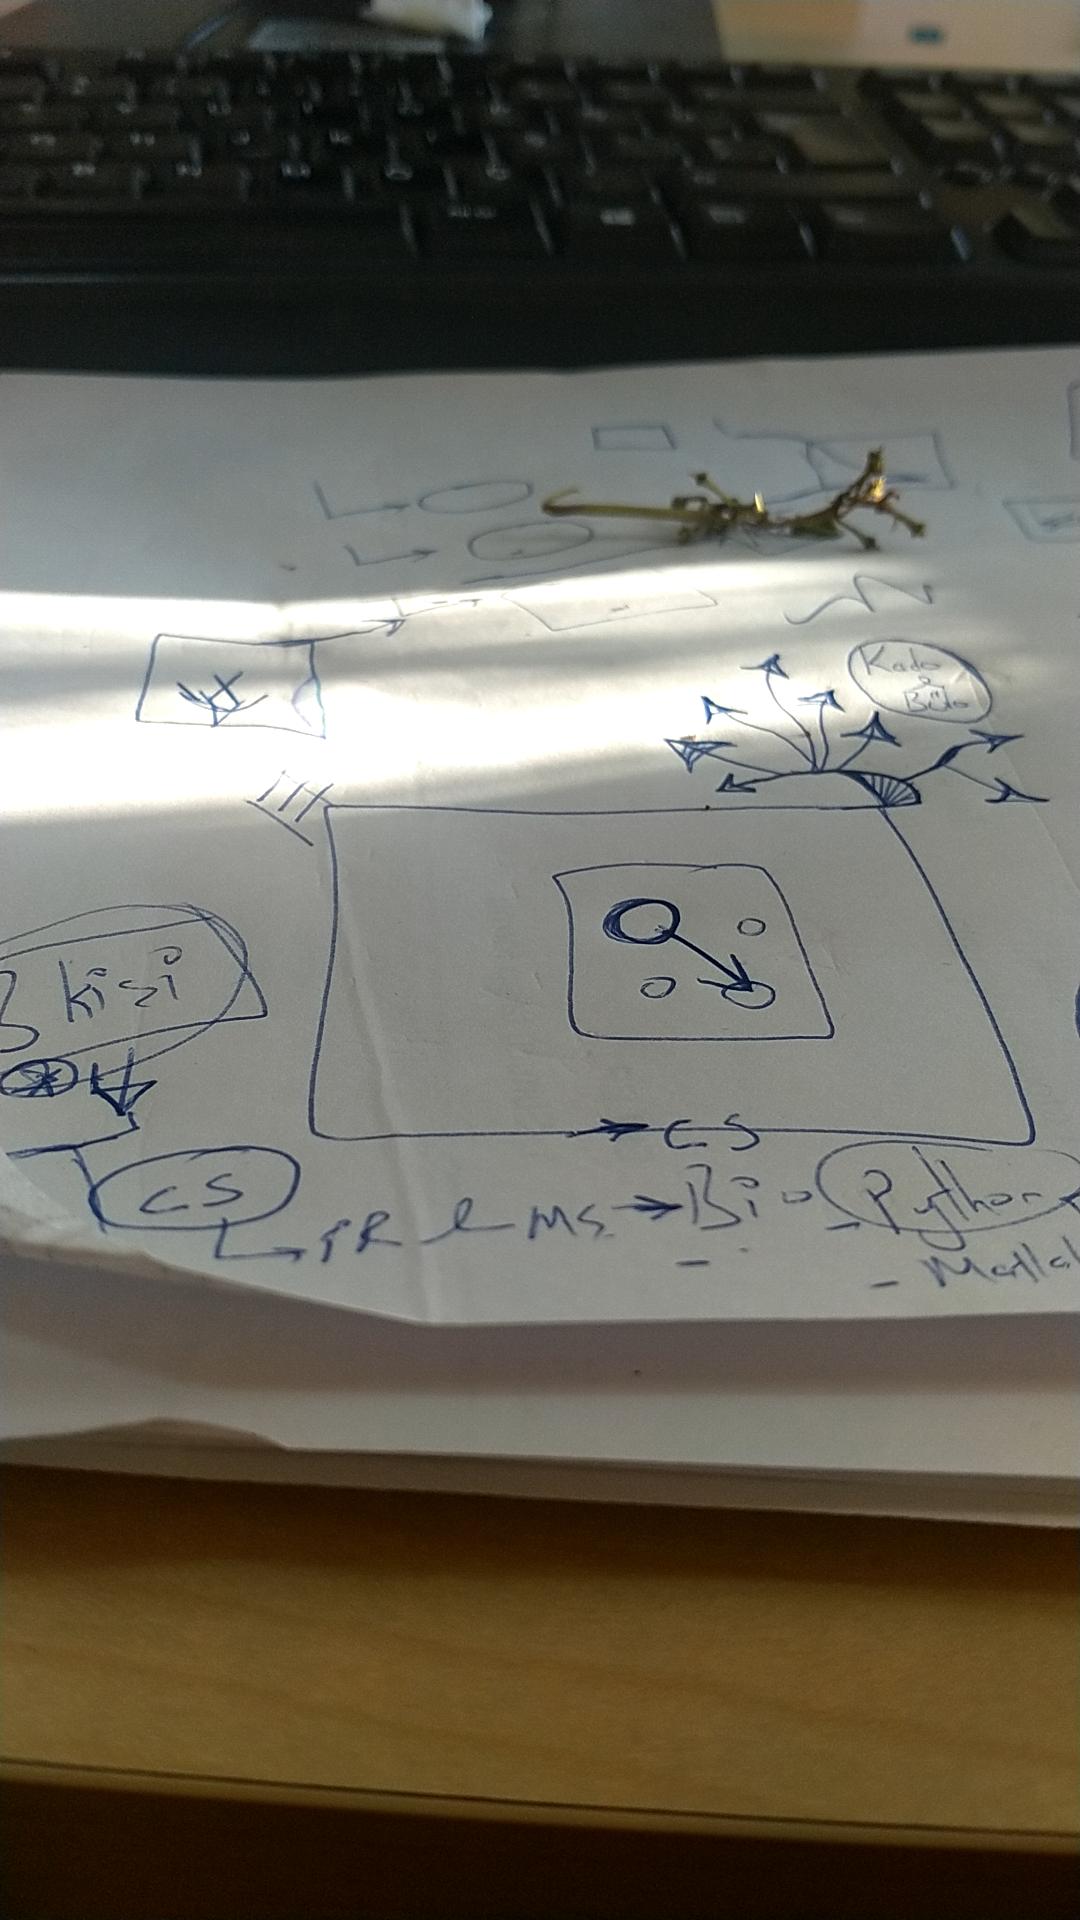 Kado
&
Büdo
3 kişi
CS
CS
PR & MS → Bio - Python
- Matlab